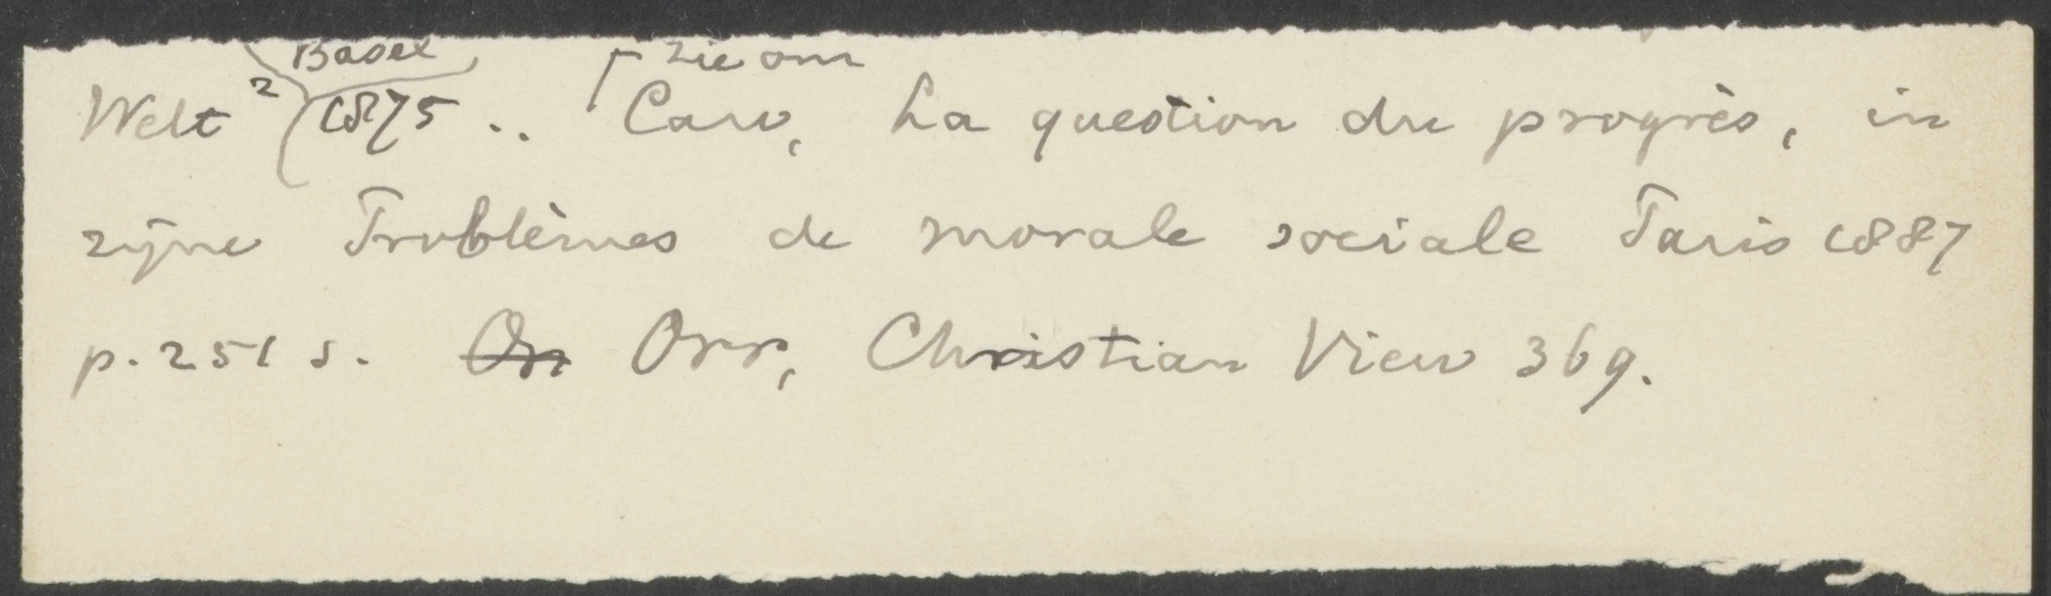 Basel ⌈ zie om
Welt² 1875 .. Caro, La question du progrès, in
zijne Problèmes de morale sociale Paris 1887
p. 251 s. Orr, Christian View 369.